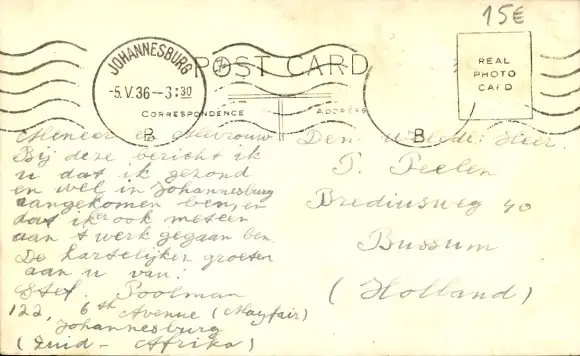 15€
JOHANNESBURG
-5.V.36-3:30
B
POST CARD
CORRESPONDENCE
ADDRESS
REAL
PHOTO
CARD
B
Meneer en Mevrouw
Bij deze bericht ik
u dat ik gezond
en wel in Johannesburg
aangekomen ben, en
dat ik er ook meteen
aan t werk gegaan ben.
De hartelijken groeten
aan u van:
Stef. Poolman
122, 6th Avenue (Mayfair)
Johannesburg
(Zuid-Afrika)
Den Heer
P. Peelen
Brediusweg 40
Bussum
(Holland)